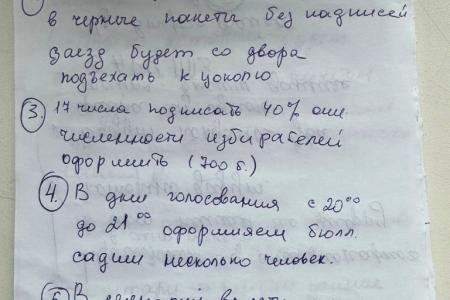 в черные пакеты без надписей
заезд будет со двора
подъехать к цоколю
3. 17 числа подписать 40% от
численности избирателей
оформить (700 б.)
4. В дни голосования с 20⁰⁰
до 21⁰⁰ оформляем бюлл.
садим несколько человек.
В